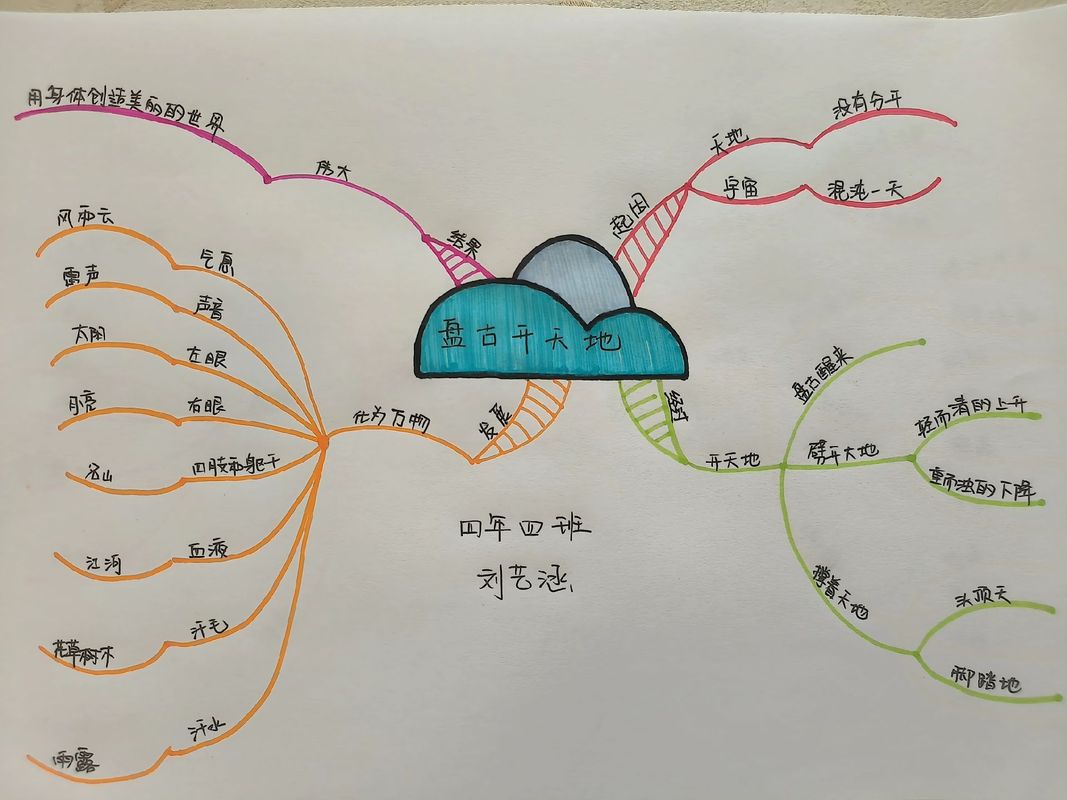 盘古开天地
起因
天地
没有分开
宇宙
混沌一天
经过
开天地
盘古醒来
劈开大地
轻而清的上升
重而浊的下降
撑着天地
头顶天
脚踏地
发展
化为万物
气息
风和云
声音
雷声
左眼
太阳
右眼
月亮
四肢和躯干
名山
血液
江河
汗毛
花草树木
汗水
雨露
结果
伟大
用身体创造美丽的世界
四年四班
刘艺涵